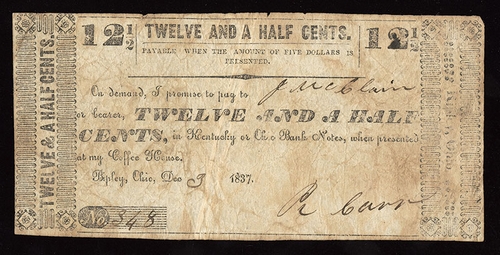 TWELVE & A HALF CENTS.
12½ TWELVE AND A HALF CENTS. 12½
PAYABLE WHEN THE AMOUNT OF FIVE DOLLARS IS
PRESENTED.
On demand, I promise to pay to J McClain
or bearer, TWELVE AND A HALF
CENTS, in Kentucky or Ohio Bank Notes, when presented
at my Coffee House.
Ripley, Ohio, Dec 9 1837.
No. 348
R Carr